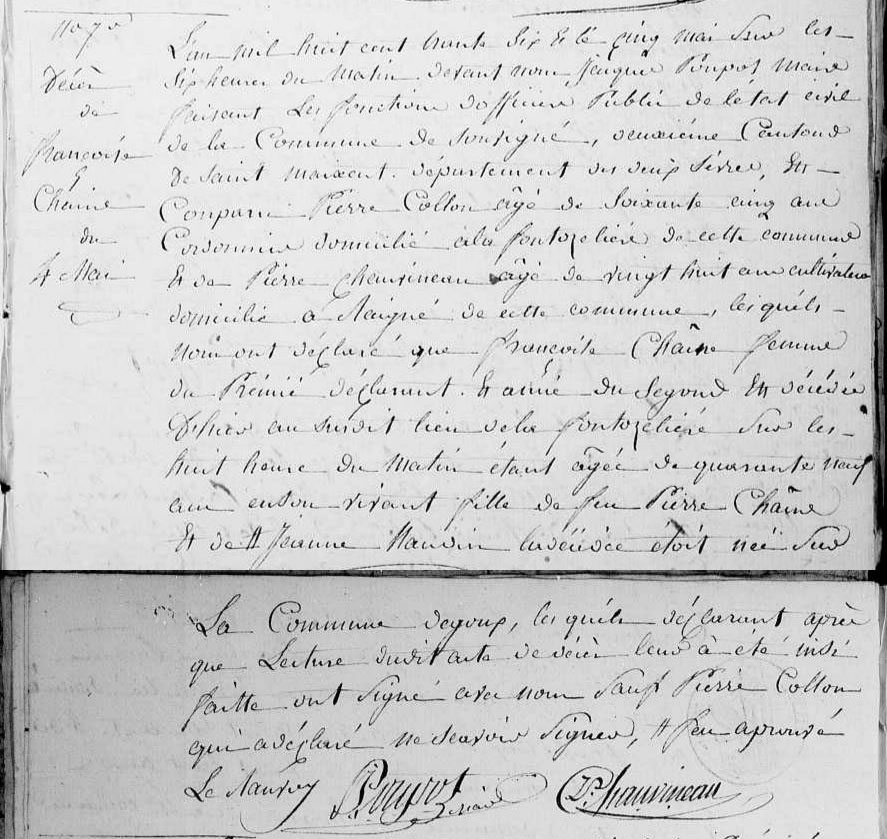 No 7
Décès
de
françoise
Chaine
du
4 Mai
L'an mil huit cent trante six et le cinq mai sur les
six heures du Matin devant nous Jacques Poupot Maire
faisant Les fonctions dofficier Public de létat civil
de la Commune de souvigné, deuxiéme Canton de
De Saint maixent. département des deux Sévres, Est
Comparu Pierre Collon âgé de Soixante cinq ans
Cordonnier domicilié à la fontozeliére de cette commune
Et de Pierre Chauvineau âgé de vingt huit ans cultivateur
domicilié a Naigné de cette commune, lesquéls
nous ont déclaré que françoise Chaîne femme
du Prémié déclarant. Et amié du Segond Est décédée
D'hier au susdit lieu de la fontozeliére Sur les
huit heure du Matin étant âgée de quarante neuf
ans enson vivant fille de feu Pierre Chaîne
Et de # Jeanne Naudin la décédée étoit née Sur
La Commune degoux, lesquéls déclarant aprés
que Lecture dudit acte de décès leur à été insi
faitte ont Signé avec nous Sauf Pierre Collon
qui a déclaré ne Scavoir Signer, # feu aprouvé
Poupot maire
P. Chauvineau